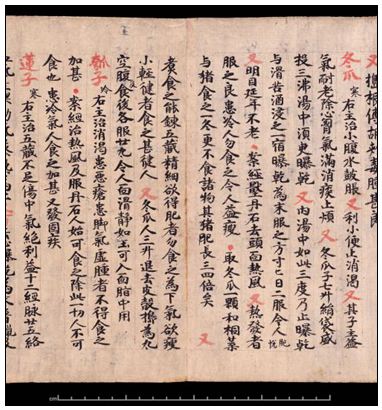 冬瓜 寒 右主治小腹水鼓脹 又利小便止消渴 又其子主益
氣耐老除心胸氣滿消痰止煩 又冬瓜子七升絹袋盛
投三沸湯中須臾曝乾 又內湯中如此三度乃止曝乾
与清苦酒浸之一宿曝乾為末服之方寸匕日二服令人肥悅
又明目延年不老 案經壓丹石去頭面熱風 又熱發者
服之良患冷人勿食之令人益瘦 取冬瓜一顆和桐葉
与猪食之一冬更不食諸物其猪肥長三四倍矣 又
煮食之能鍊五藏精細欲得肥者勿食之為下氣欲瘦
小輕健者食之甚健人 又冬瓜人三升退去皮殼擣為丸
空腹及食後各服廿丸令人面滑静如玉可入面脂中用
瓠子 冷 右主治消渴患惡瘡患脚氣虛腫者不得食之
加甚 案經治熱風及服丹石人始可食之除此一切人不可
食也患冷氣人食之加甚又發固疾
蓮子 寒 右主治五藏不足傷中氣絶利益十二經脉廿五絡
cm